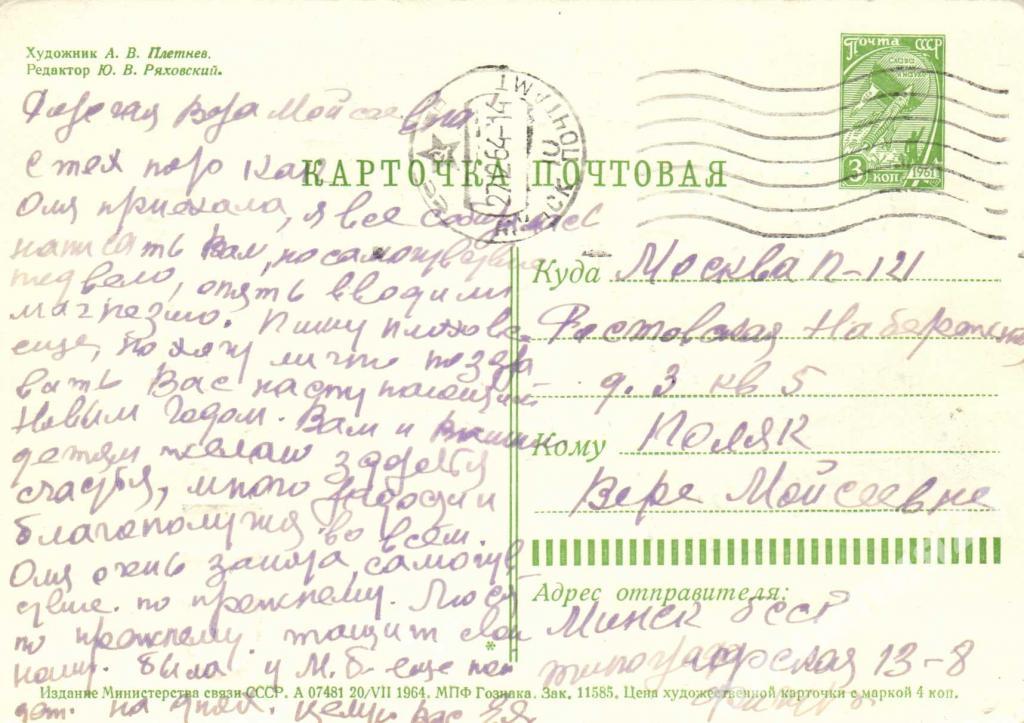 Художник А. В. Плетнев.
Редактор Ю. В. Ряховский.
Почта СССР
3 коп 1961
КАРТОЧКА ПОЧТОВАЯ
27 12 64-14
ПОЧТАМТ
Дорогая Вера Мойсеевна
С тех пор как
Оля приехала, я все собираюсь
написать Вам, но самочувствие
подвело, опять вводили
магнезию. Пишу плохо
еще, но хочу лично поздра
вать Вас наступающим
Новым Годом. Вам и Вашим
детям желаю здоровья
счастья, много радости и
благополучия во всем.
Оля очень занята, самочув
ствие по прежнему. Люся
по прежнему тащит свою
ношу. была у М.Б. еще
на днях. Целую вас
Куда Москва П-121
Ростовская Набережная
д. 3 кв 5
Кому Поляк
Вере Мойсеевне
Адрес отправителя:
Минск БССР
13-8
Издание Министерства связи СССР. А 07481 20/VII 1964. МПФ Гознака. Зак. 11585. Цена художественной карточки с маркой 4 коп.